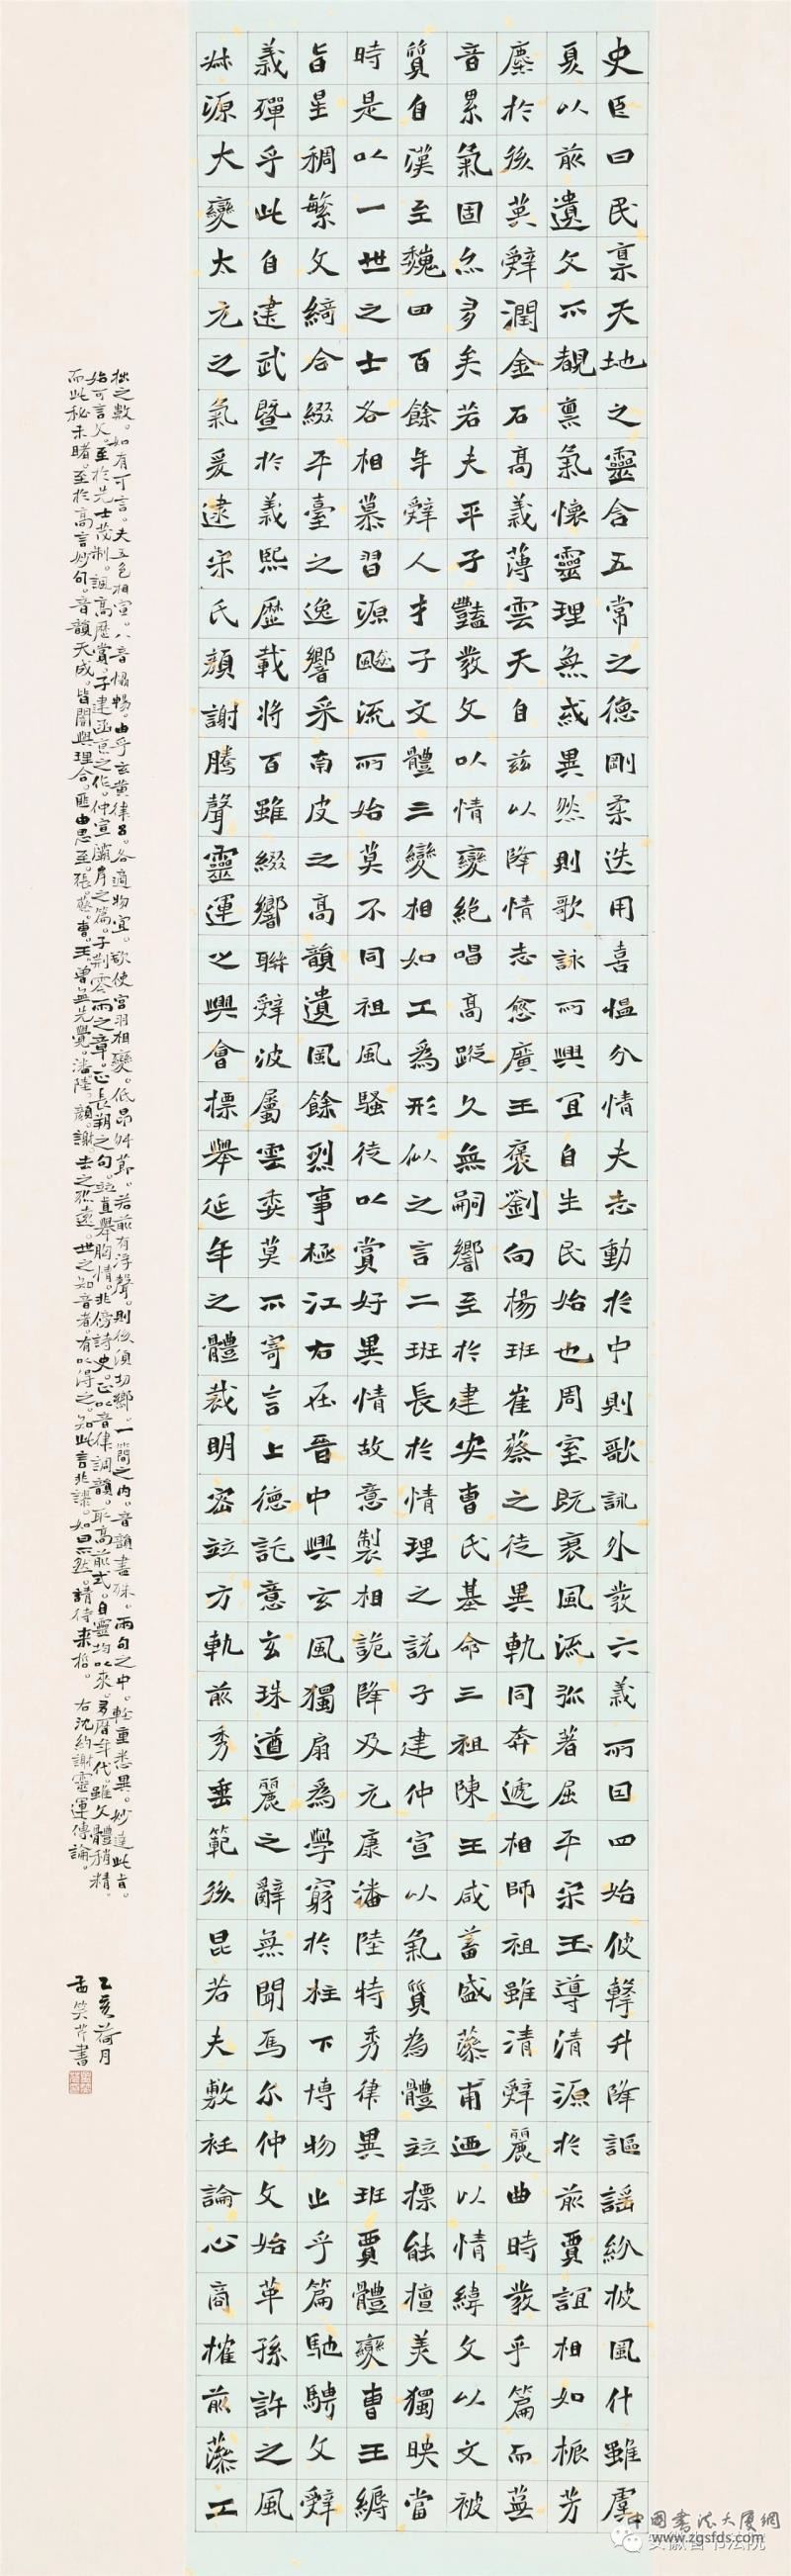 史臣曰民禀天地之靈含五常之德剛柔迭用喜愠分情夫志動於中則歌詠外發六義所因四始攸繫升降謳謠紛披風什雖虞
夏以前遺文不覩禀氣懷靈理無或異然則歌詠所興宜自生民始也周室既衰風流弥著屈平宋玉導清源於前賈誼相如振芳
塵於後英辭潤金石高義薄雲天自兹以降情志愈廣王褒劉向楊班崔蔡之徒異軌同奔遞相師祖雖清辭麗曲時發乎篇而蕪
音累氣固亦多矣若夫平子豔發文以情變絕唱高蹤久無嗣響至於建安曹氏基命三祖陳王咸蓄盛藻甫迺以情緯文以文被
質自漢至魏四百餘年辭人才子文體三變相如工為形似之言二班長於情理之說子建仲宣以氣質為體並標能擅美獨映當
時是以一世之士各相慕習源飈流所始莫不同祖風騷徒以賞好異情故意製相詭降及元康潘陸特秀律異班賈體變曹王縟
旨星稠繁文綺合綴平臺之逸響采南皮之高韻遺風餘烈事極江右在晉中興玄風獨扇為學窮於柱下博物止乎篇馳騁文辭
義殫乎此自建武暨於義熙歷載將百雖綴響聯辭波屬雲委莫不寄言上德託意玄珠遒麗之辭無聞焉尔仲文始革孫許之風
叔源大變太元之氣爰逮宋氏顏謝騰聲靈運之興會標舉延年之體裁明密並方軌前秀垂範後昆若夫敷衽論心商榷前藻工
拙之數。如有可言。夫五色相宣。八音協暢。由乎玄黄律吕。各適物宜。欲使宮羽相變。低昂舛節。若前有浮聲。則後須切響。一簡之内。音韻書殊。兩句之中。輕重悉異。妙達此旨。
始可言文。至於先士茂制。諷高歷賞。子建函京之作。仲宣灞岸之篇。子荆零雨之章。正長朔之句。並直舉胸情。非傍詩史。正以音律調韻。取高前式。自靈均以來。多歷年代。雖文體稍精。
而此秘未睹。至於高言妙句。音韻天成。皆闇與理合。匪由思至。張。蔡。曹。王。曾無先覺。潘陸。顏。謝。去之弥遠。世之知音者。有以得之。知此言非謬。如曰不然。請待来哲。 右沈約謝靈運傳論。
己亥荷月
孟笑芹書
中国书法大厦网
www.zgsfds.com
安徽省书法院